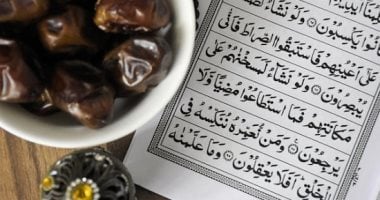 كَانُوا۟ يَكْسِبُونَ ۝ وَلَوْ نَشَآءُ لَطَمَسْنَا
عَلَىٰٓ أَعْيُنِهِمْ فَٱسْتَبَقُوا۟ ٱلصِّرَٰطَ فَأَنَّىٰ
يُبْصِرُونَ ۝ وَلَوْ نَشَآءُ لَمَسَخْنَٰهُمْ عَلَىٰ
مَكَانَتِهِمْ فَمَا ٱسْتَطَٰعُوا۟ مُضِيًّا وَلَا
يَرْجِعُونَ ۝ وَمَن نُّعَمِّرْهُ نُنَكِّسْهُ فِى
ٱلْخَلْقِ أَفَلَا يَعْقِلُونَ ۝ وَمَا عَلَّمْنَٰهُ